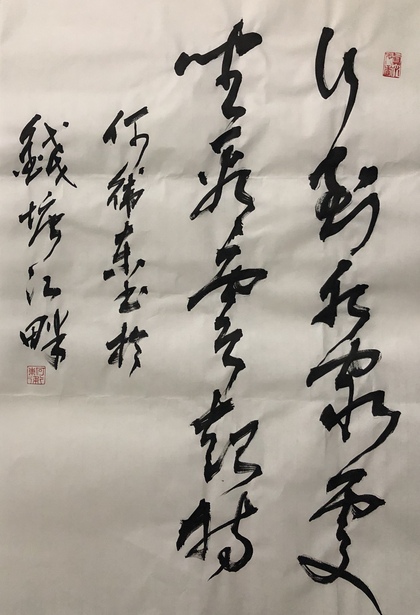 行到水窮處
坐看雲起時
何衛東書於
錢塘江畔